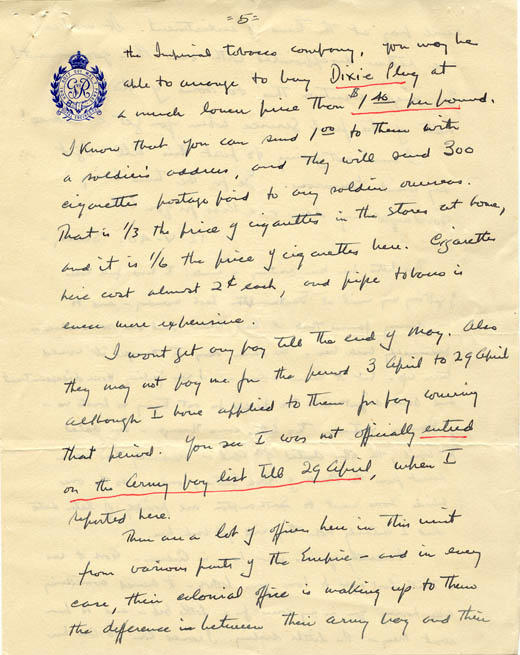 =5=
the Imperial tobacco company, you may be
able to arrange to buy Dixie Plug at
a much lower price than $1.40 per pound.
I know that you can send 1.00 to them with
a soldier's address, and they will send 300
cigarettes postage paid to any soldier overseas.
That is 1/3 the price of cigarettes in the stores at home,
and it is 1/6 the price of cigarettes here. Cigarettes
here cost almost 2¢ each, and pipe tobacco is
even more expensive.
I wont get any pay till the end of May. Also
they may not pay me for the period 3 April to 29 April
although I have applied to them for pay covering
that period. You see I was not officially entered
on the Army pay list till 29 April, when I
reported here.
There are a lot of officers here in this unit
from various parts of the Empire – and in every
case, their colonial office is making up to them
the difference in between their army pay and their